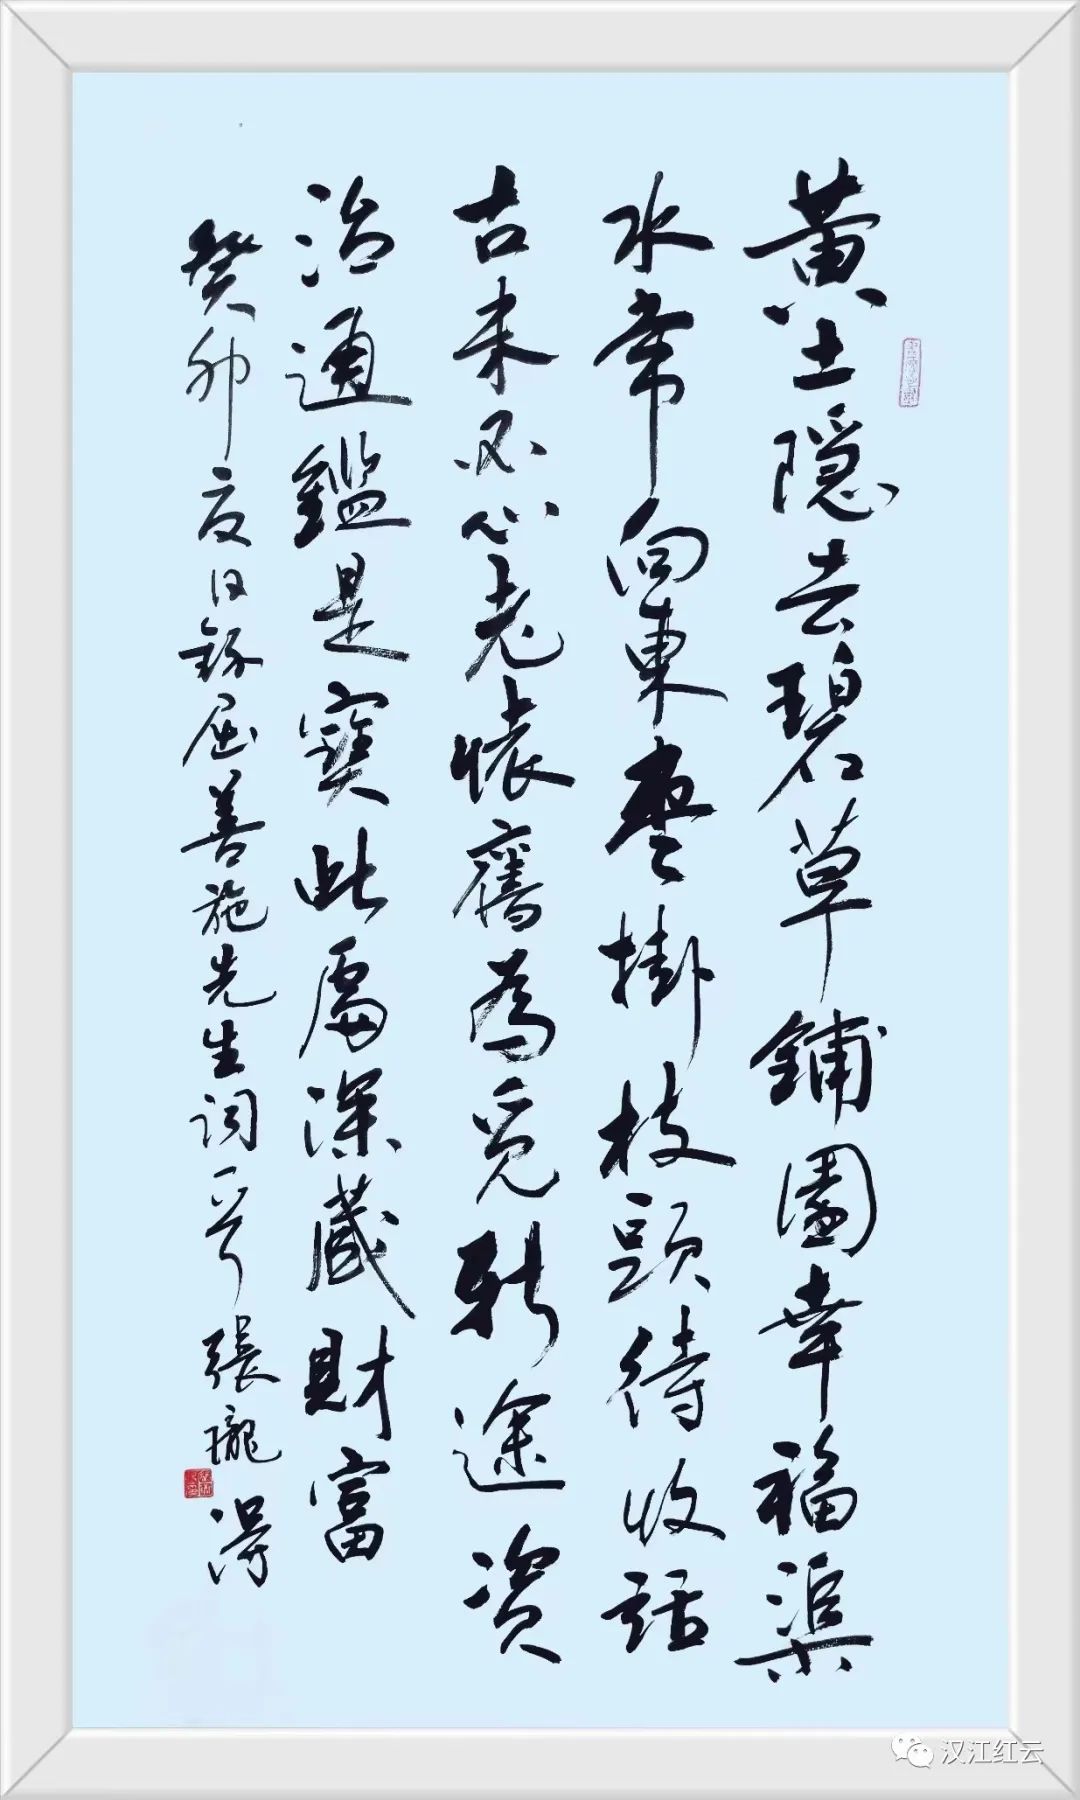 黄土隐去碧草铺園幸福渠
水常向東枣掛枝頭待收話
古未必心老懐舊為觅新途资
治通鑑是寳此處深藏財富
癸卯夏日録屈善施先生词一首張瓏得
汉江红云